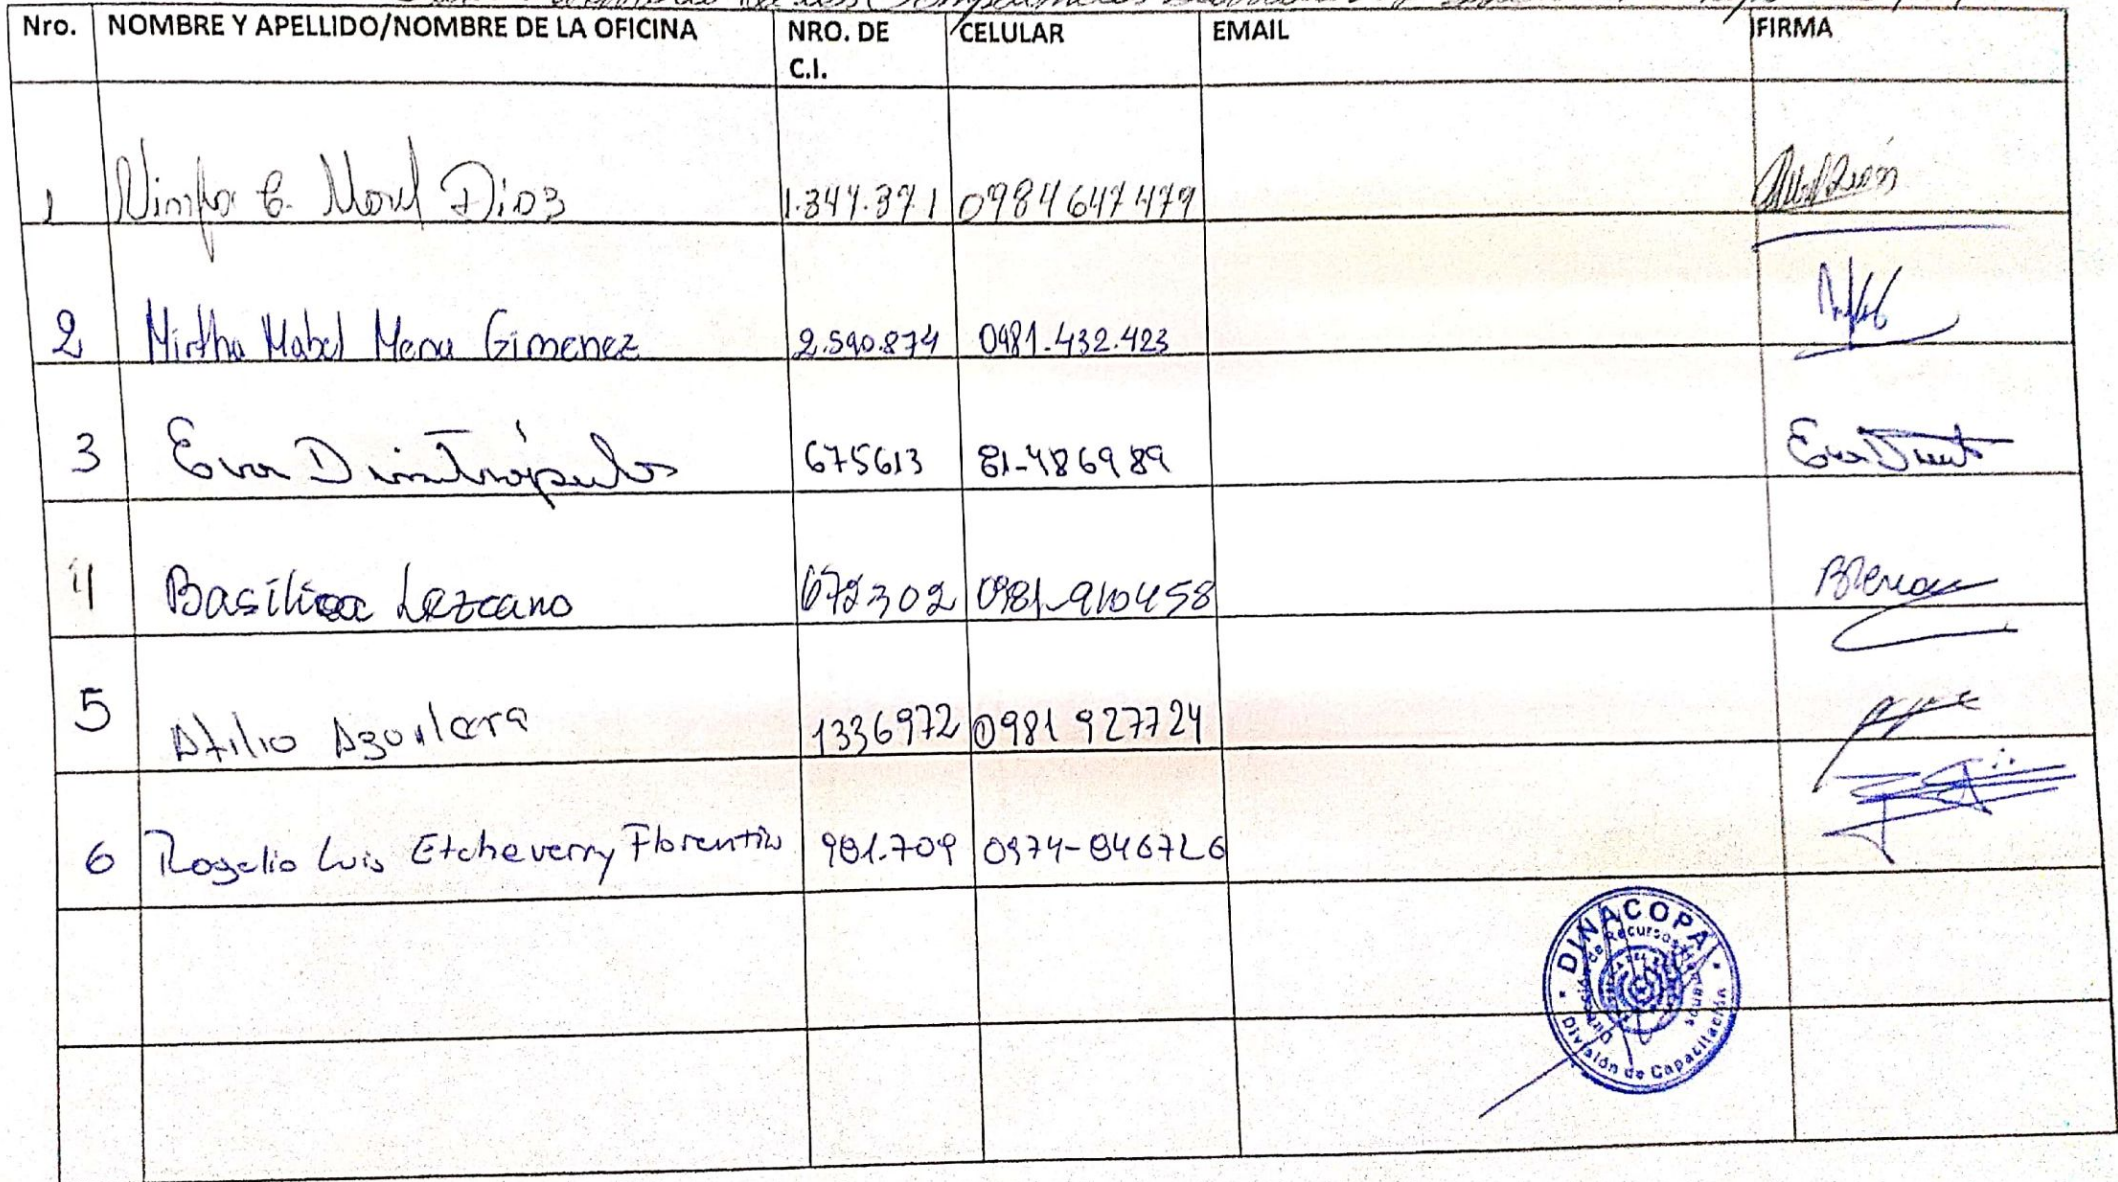 Nro. NOMBRE Y APELLIDO/NOMBRE DE LA OFICINA NRO. DE C.I. CELULAR EMAIL FIRMA
1 Ninfa C. Morel Dioz 1.347.371 0984 647 479
2 Mirtha Mabel Mena Gimenez 2.590.874 0981-432.423
3 Eva Dimitrópulos 675613 81-486989
4 Basílica Lezcano 672302 0981-910458
5 Atilio Aguilera 1336972 0981 927724
6 Rogelio Luis Etcheverry Florentín 981.709 0974-846726
DINACOPA
de Recursos Humanos
División de Capacitación